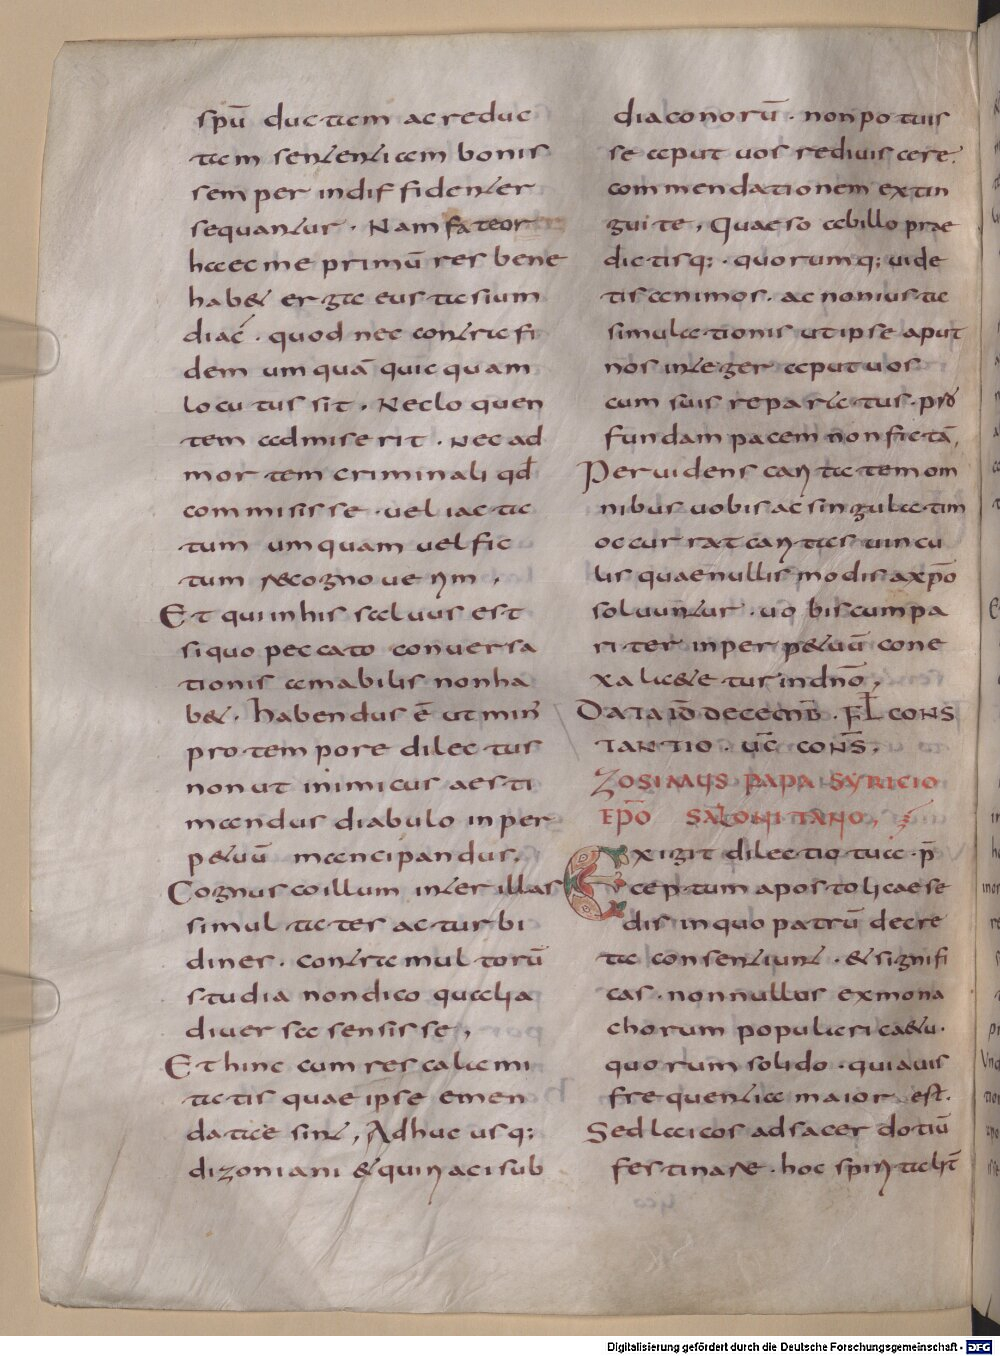 spū ductam ac reduc
tam sententiam bonis
semper indiffidenter
sequantur. Nam fateor
haec me primū res bene
hab& erga eustasium
diac̄. quod nec contra fi
dem umquā quicquam
locutus sit. Nec loquen
tem admiserit. nec ad
mortem criminali qd̄
commisisse. vel iacta
tum umquam vel fic
tum recognouerim.
Et qui in his saluus est
si quo peccato conuersa
tionis amabilis non ha
b&. habendus ē ut min̄
pro tempore dilectus
non ut inimicus aesti
mandus diabulo in per
p&uū mancipandus.
Cognusco illum inter illas
simultates ac turbi
dines. contra multorū
studia non dico qua alia
diuersa sensisse,
Et hinc cum res calami
tatis quae ipse emen
datae sint, Adhuc usq;
dizoniani & quiriaci sub
diaconorū. non potuis
se aput uos rediuiscere.
commendationem extin
guite, Quaeso ab illo prae
dictisq;. quorumq; uide
tis animos. ac non iusta
simulationis ut ipse aput
nōs integer aput uos
cum suis reparatus. pro
fundam pacem non fictā,
Peruidens caritatem om
nibus uobis ac singulatim
occurrat caritas uincu
lis quae nullis modis a xp̄o
soluuntur. uobiscum pa
riter in perp&uū cone
xa laetetur in dn̄o,
DATA ID̄ DECEMB̄. FL̄ CONS
TANTIO. UC̄ CONS̄.
ZOSIMUS PAPA SYRICIO
EPŌ SALONITANO,
Exigit dilectio tua. p̄
ceptum apostolicae se
dis in quo patrū decre
ta consentiunt. & signifi
cas. nonnullos ex mona
chorum populari caetu.
quorum solido. quiauis
frequentia maior est.
Sed laicos ad sacerdotiū
festinare. hoc spiritalit̄
Digitalisierung gefördert durch die Deutsche Forschungsgemeinschaft - DFG